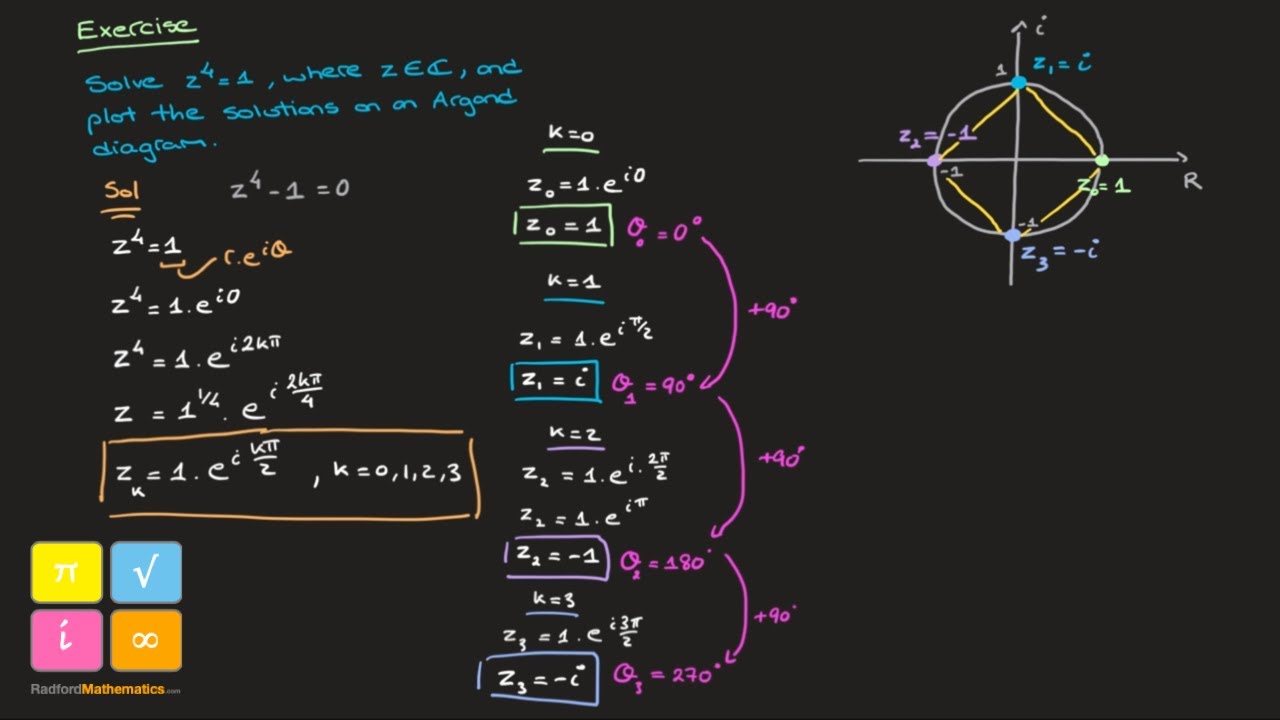 Exercise
Solve z⁴=1, where z∈ℂ, and
plot the solutions on an Argand
diagram.
Sol
z⁴-1=0
z⁴=1
r.e^{iθ}
z⁴=1.e^{i0}
z⁴=1.e^{i2kπ}
z=1^{1/4}.e^{i 2kπ/4}
z_k=1.e^{i kπ/2}, k=0,1,2,3
k=0
z₀=1.e^{i0}
z₀=1 θ₀=0°
+90°
k=1
z₁=1.e^{iπ/2}
z₁=i θ₁=90°
+90°
k=2
z₂=1.e^{i.2π/2}
z₂=1.e^{iπ}
z₂=-1 θ₂=180°
+90°
k=3
z₃=1.e^{i3π/2}
z₃=-i θ₃=270°
i
1
z₁=i
z₂=-1
-1
z₀=1
R
-1
z₃=-i
π √
i ∞
RadfordMathematics.com